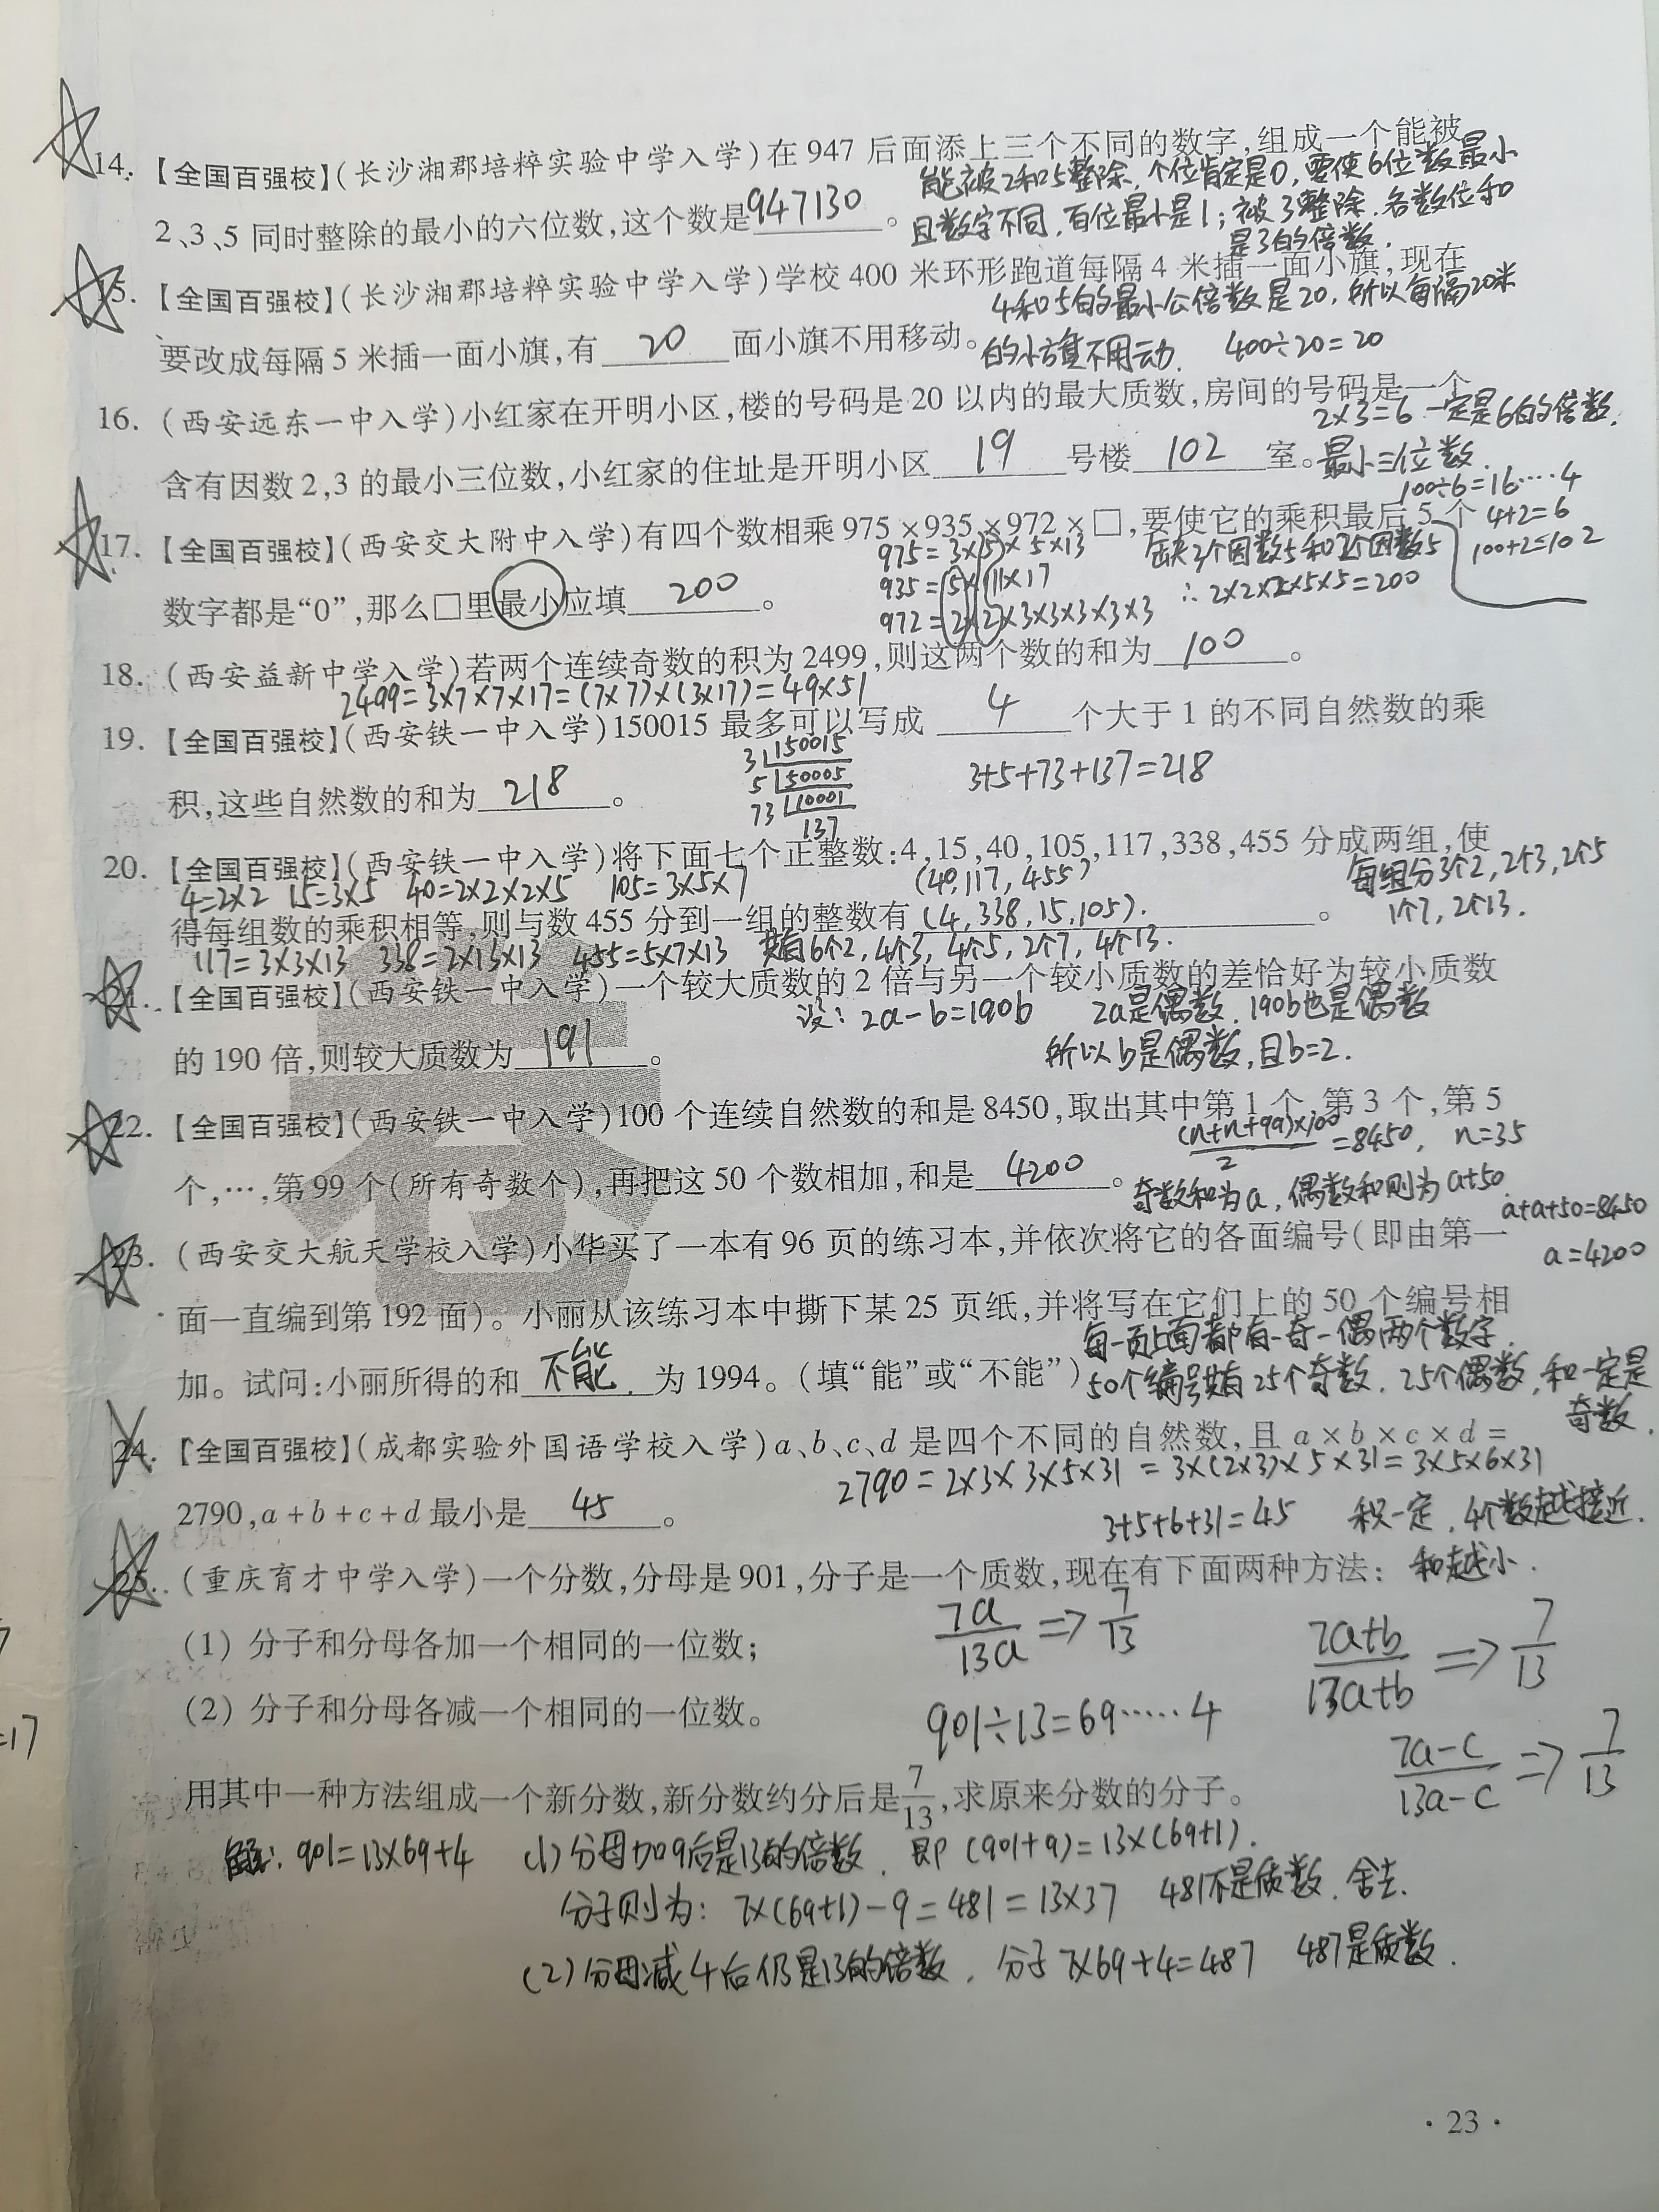 14. 【全国百强校】(长沙湘郡培粹实验中学入学)在 947 后面添上三个不同的数字,组成一个能被
能被2和5整除,个位肯定是0,要使6位数最小
2、3、5 同时整除的最小的六位数,这个数是947130。
且数字不同,百位最小是1;被3整除,各数位和
是3的倍数.
15. 【全国百强校】(长沙湘郡培粹实验中学入学)学校 400 米环形跑道每隔 4 米插一面小旗,现在
4和5的最小公倍数是20,所以每隔20米
要改成每隔 5 米插一面小旗,有 20 面小旗不用移动。
的小旗不用动. 400÷20=20
16. (西安远东一中入学)小红家在开明小区,楼的号码是 20 以内的最大质数,房间的号码是一个
2×3=6 一定是6的倍数.
含有因数 2,3 的最小三位数,小红家的住址是开明小区 19 号楼 102 室。
最小三位数.
100÷6=16……4
4+2=6
100+2=102
17. 【全国百强校】(西安交大附中入学)有四个数相乘 975×935×972×□,要使它的乘积最后 5 个
975=3×5×5×13
935=5×11×17
972=2×2×3×3×3×3×3
缺3个因数2和2个因数5
∴2×2×2×5×5=200
数字都是“0”,那么□里最小应填 200。
18. (西安益新中学入学)若两个连续奇数的积为 2499,则这两个数的和为 100。
2499=3×7×7×17=(7×7)×(3×17)=49×51
19. 【全国百强校】(西安铁一中入学)150015 最多可以写成 4 个大于 1 的不同自然数的乘
3 150015
5 50005
73 10001
137
3+5+73+137=218
积,这些自然数的和为 218。
20. 【全国百强校】(西安铁一中入学)将下面七个正整数:4,15,40,105,117,338,455 分成两组,使
4=2×2 15=3×5 40=2×2×2×5 105=3×5×7 (40,117,455)
每组分3个2,2个3,2个5
1个7,2个13.
得每组数的乘积相等,则与数 455 分到一组的整数有 (4,338,15,105).。
117=3×3×13 338=2×13×13 455=5×7×13 共有6个2,4个3,4个5,2个7,4个13.
21. 【全国百强校】(西安铁一中入学)一个较大质数的 2 倍与另一个较小质数的差恰好为较小质数
设:2a-b=190b 2a是偶数,190b也是偶数
的 190 倍,则较大质数为 191。
所以b是偶数,且b=2.
22. 【全国百强校】(西安铁一中入学)100 个连续自然数的和是 8450,取出其中第 1 个,第 3 个,第 5
(n+n+99)×100/2=8450, n=35
个,…,第 99 个(所有奇数个),再把这 50 个数相加,和是 4200。
奇数和为a,偶数和则为a+50
a+a+50=8450
a=4200
23. (西安交大航天学校入学)小华买了一本有 96 页的练习本,并依次将它的各面编号(即由第一
面一直编到第 192 面)。小丽从该练习本中撕下某 25 页纸,并将写在它们上的 50 个编号相
每一页上面都有一奇一偶两个数字.
加。试问:小丽所得的和 不能 为 1994。(填“能”或“不能”)
50个编号共有25个奇数,25个偶数,和一定是
奇数.
24. 【全国百强校】(成都实验外国语学校入学)a、b、c、d 是四个不同的自然数,且 a×b×c×d=
2790=2×3×3×5×31=3×(2×3)×5×31=3×5×6×31
2790,a+b+c+d 最小是 45。
3+5+6+31=45 积一定,4个数越接近.
和越小.
25. (重庆育才中学入学)一个分数,分母是 901,分子是一个质数,现在有下面两种方法:
(1) 分子和分母各加一个相同的一位数;
7a/13a⇒7/13 7a+b/13a+b⇒7/13
(2) 分子和分母各减一个相同的一位数。
901÷13=69……4 7a-c/13a-c⇒7/13
用其中一种方法组成一个新分数,新分数约分后是7/13,求原来分数的分子。
解:901=13×69+4 (1)分母加9后是13的倍数,即(901+9)=13×(69+1).
分子则为:7×(69+1)-9=481=13×37 481不是质数,舍去.
(2)分母减4后仍是13的倍数,分子7×69+4=487 487是质数.
=17
·23·